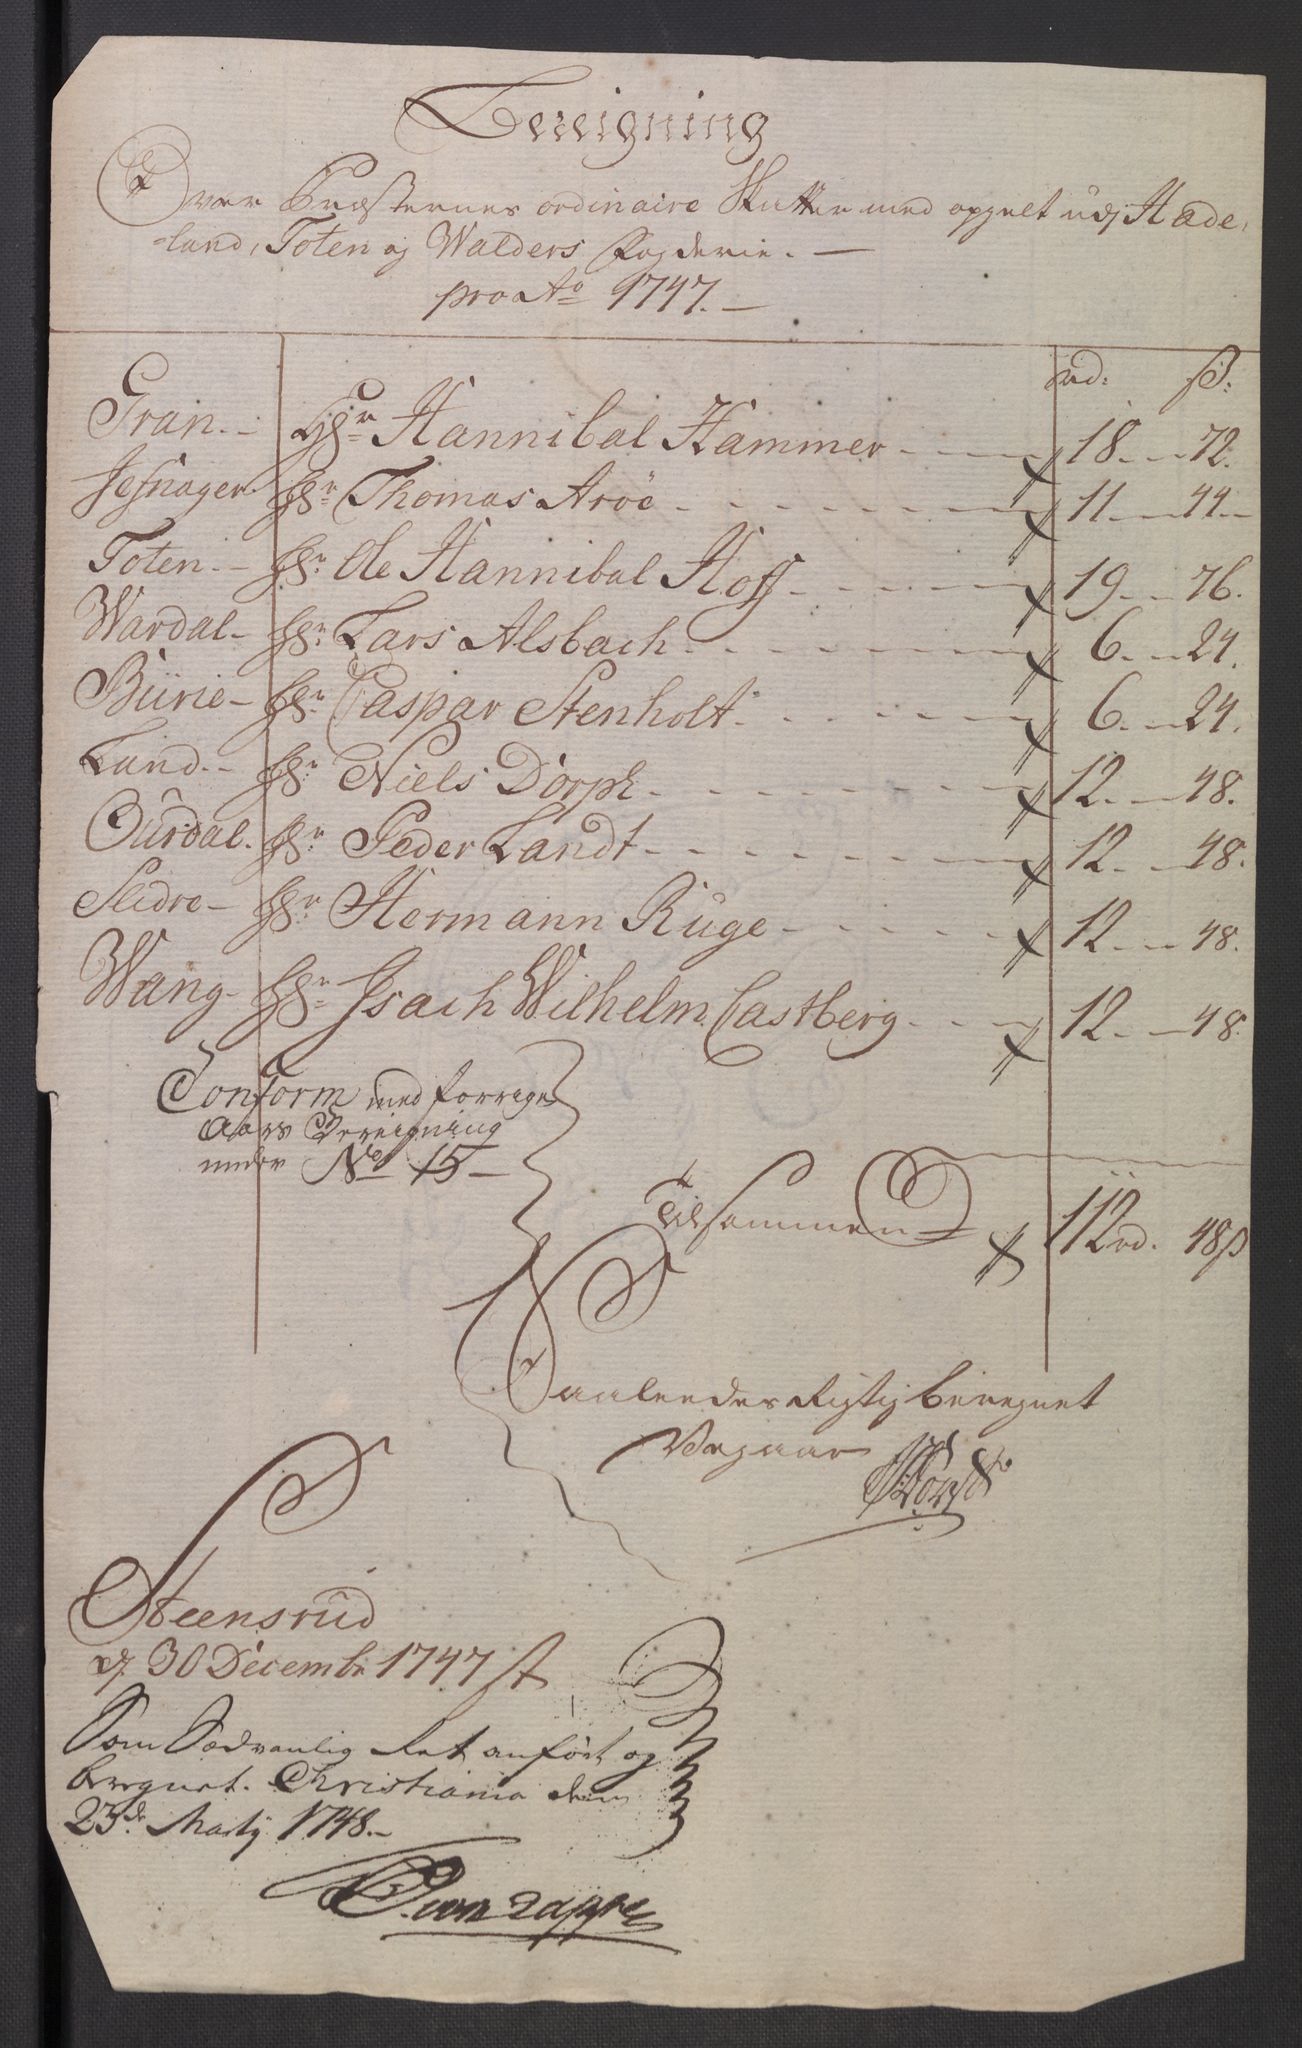 Bereigning
Over Præsternes ordinaire Skatter med opgelt udj Hade,
=land, Toten og Walders Fogderie. —
pro Ao 1747. —
rd: ß:
Gran. - Hr Hannibal Hammer - - - 18 - - 72.
Jefnager. Hr Thomas Aröe - - - 11 - - 44 -
Toten. - Hr Ole Hannibal Hoff - - - 19 - - 76.
Wardal - Hr Lars Alsbach - - - 6 - - 24.
Biirie - Hr Caspar Stenholt - - - 6 - - 24.
Land. - Hr Niels Dorph - - - 12 - - 48.
Ourdal. Hr Peder Landt - - - 12 - - 48.
Slidre - Hr Hermann Ruge - - - 12 - - 48.
Wang - Hr Isach Wilhelm Castberg - - - 12 - - 48.
Conform med forrige
Aars Bereigning
under No 15 —
Tilsammen 112 rd. 48 ß
Saaledes Rigtig beregnet
Steensrud
dj 30 Decembr 1747
Som Sædvanlig Ret anfört og
beregnet. Christiania den
23de Martij 1748. -